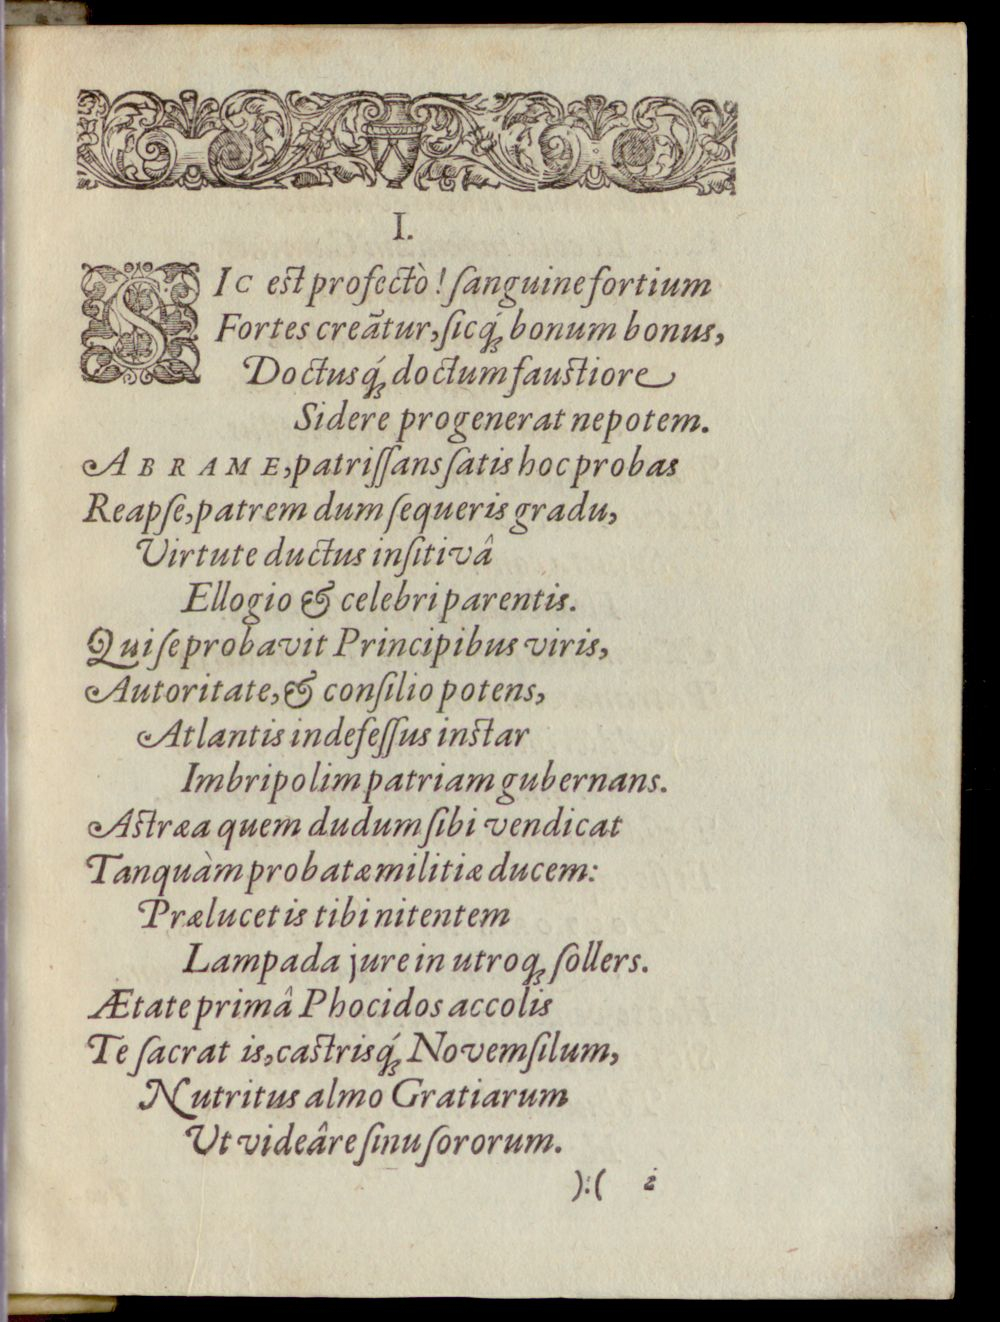 I.
SIC est profectò! ſanguine fortium
Fortes creãtur, ſicq́; bonum bonus,
Doctusq́; doctum faustiore
Sidere progenerat nepotem.
ABRAME, patriſſans ſatis hoc probas
Reapſe, patrem dum ſequeris gradu,
Virtute ductus inſitivâ
Ellogio & celebri parentis.
Qui ſe probavit Principibus viris,
Autoritate, & conſilio potens,
Atlantis indefeſſus instar
Imbripolim patriam gubernans.
Astræa quem dudum ſibi vendicat
Tanquàm probatæ militiæ ducem:
Prælucet is tibi nitentem
Lampada jure in utroq; ſollers.
Ætate primâ Phocidos accolis
Te ſacrat is, castrisq́; Novemſilum,
Nutritus almo Gratiarum
Ut videâre ſinu ſororum.
):( 2